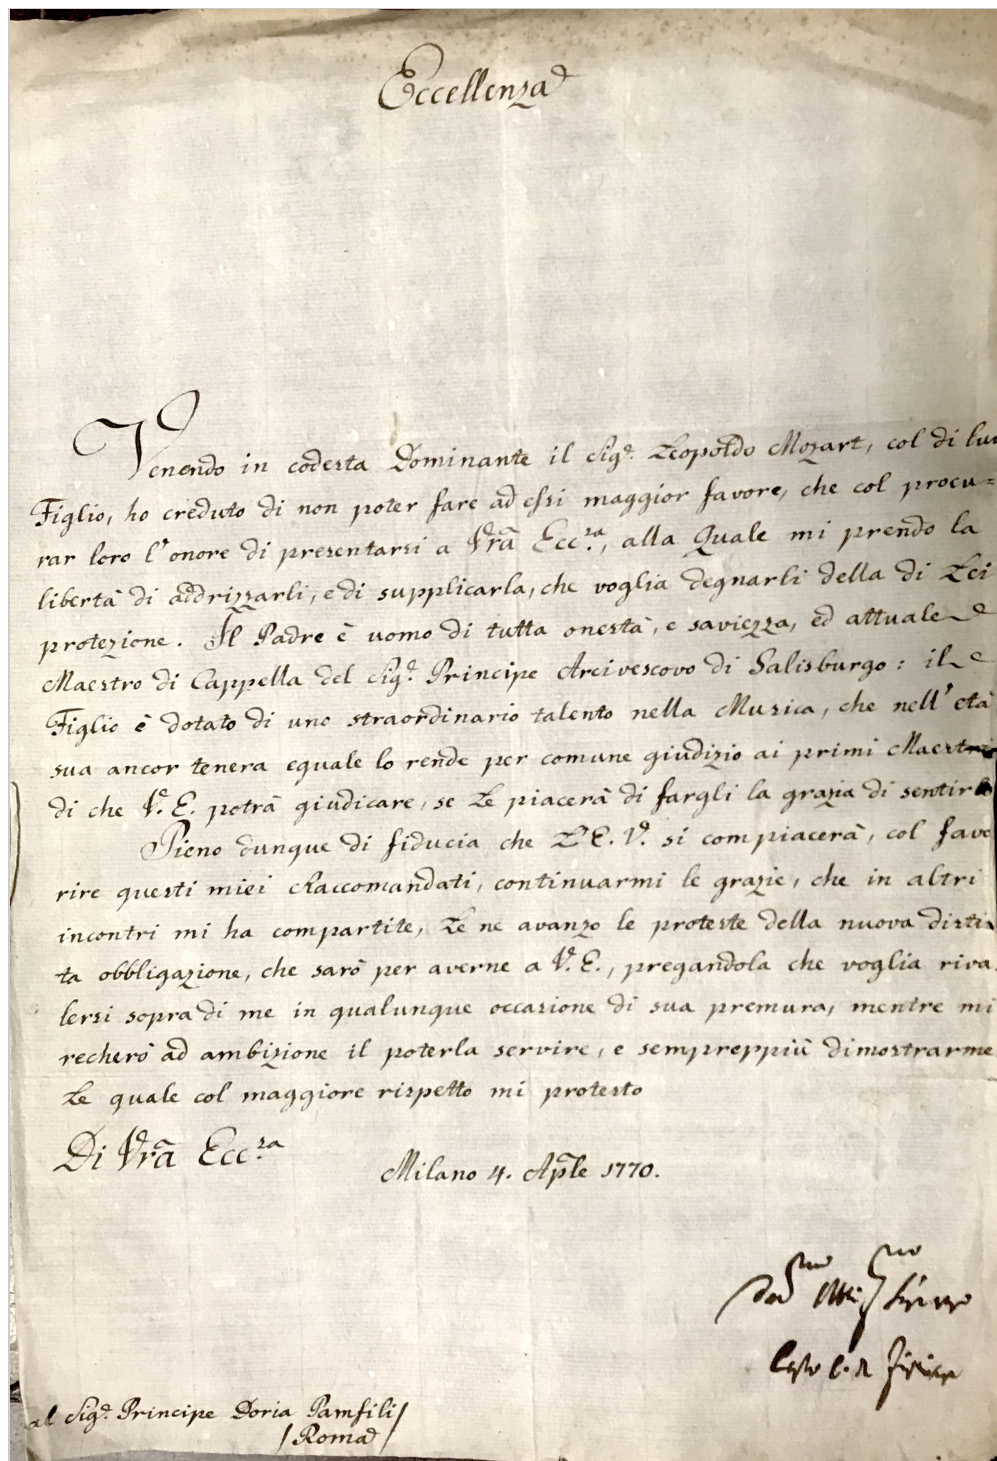 Eccellenza
Venendo in codesta Dominante il Sigr. Leopoldo Mozart, col di lui
Figlio, ho creduto di non poter fare ad essi maggior favore, che col procu=
rar loro l'onore di presentarsi a Vrã Ecc.za, alla Quale mi prendo la
libertà di addrizzarli, e di supplicarla, che voglia degnarli della di Lei
protezione. Il Padre è uomo di tutta onestà, e saviezza, ed attuale
Maestro di Cappella del Sigr. Principe Arcivescovo di Salisburgo: il
Figlio è dotato di uno straordinario talento nella Musica, che nell'età
sua ancor tenera equale lo rende per comune giudizio ai primi Maestri
di che V.ª E. potrà giudicare, se Le piacerà di fargli la grazia di sentirlo
Pieno dunque di fiducia che L'E. V.ª si compiacerà, col favo
rire questi miei Raccomandati, continuarmi le grazie, che in altri
incontri mi ha compartite, Le ne avanzo le proteste della nuova distin
ta obbligazione, che sarò per averne a V.ª E., pregandola che voglia riva
lersi sopra di me in qualunque occasione di sua premura, mentre mi
recherò ad ambizione il poterla servire, e sempreppiù dimostrarme
Le quale col maggiore rispetto mi protesto
Di Vrã Ecc.za
Milano 4. Aple 1770.
al Sigr. Principe Doria Pamfili/
/Roma/